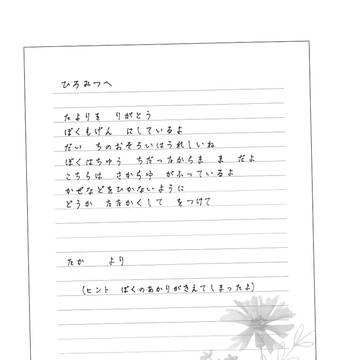 ひろみつへ
たよりを　りがとう
ぼくもげん　にしているよ
だい　ちのおそろいはうれしいね
ぼくはちゅう　ちだったからま　ま　だよ
こちらは　さからゆ　がふっているよ
かぜなどをひかないように
どうか　たたかくして　をつけて
たか　　より
(ヒント　ぼくのあかりがきえてしまったよ)